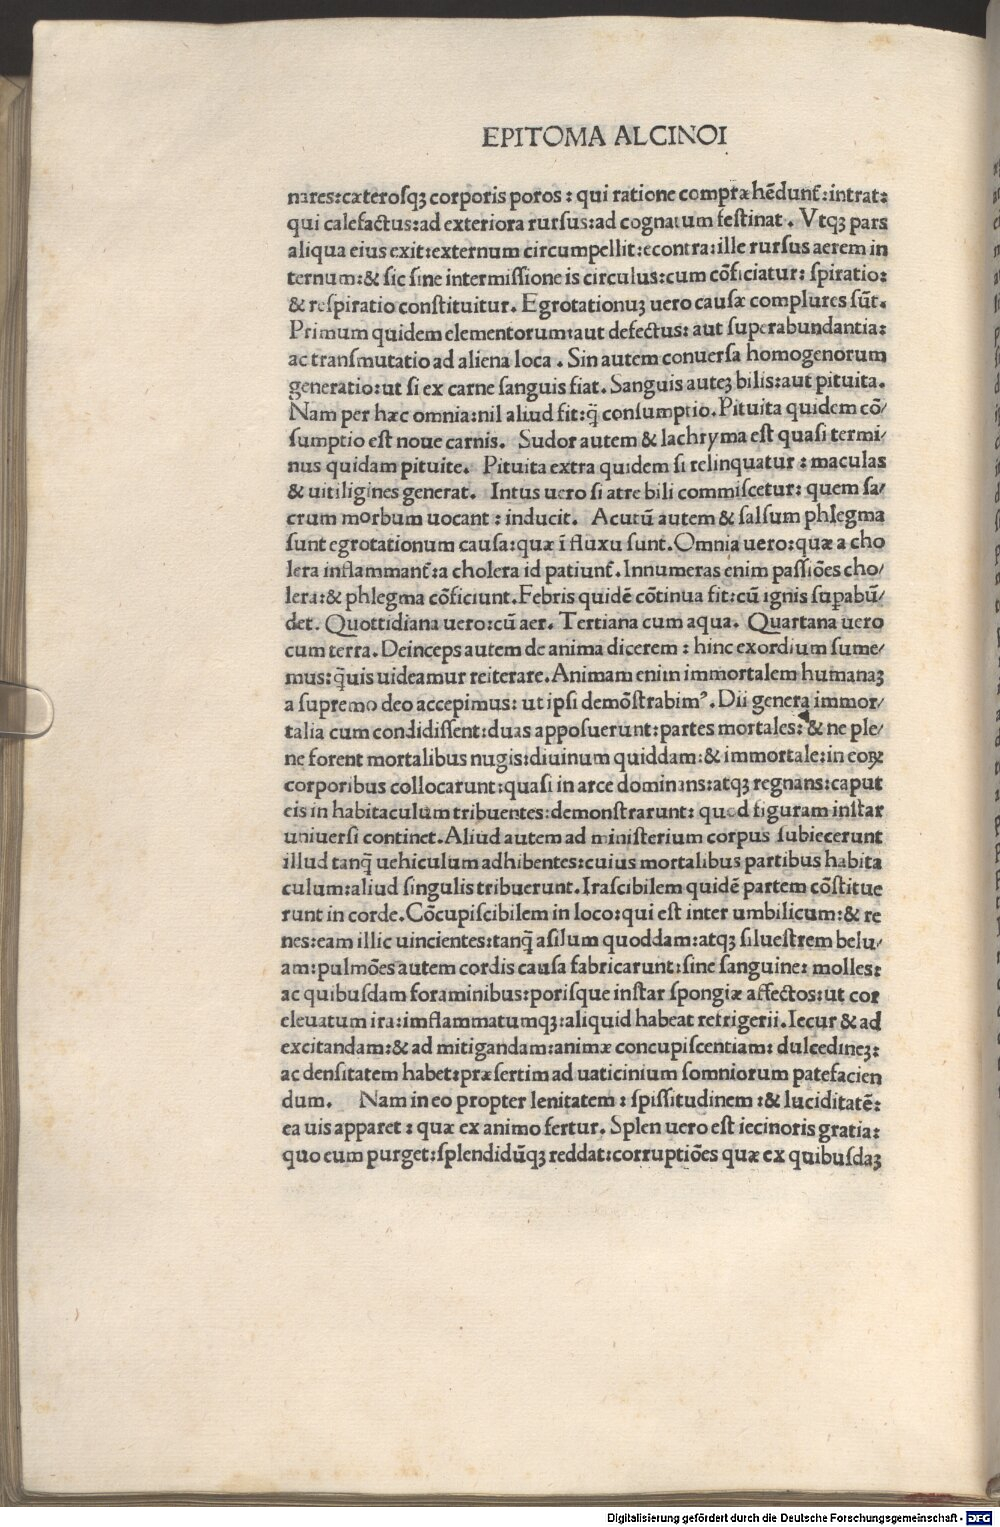 EPITOMA ALCINOI
nares:cæterosqꝫ corporis poros : qui ratione compræhẽdunt̃:intrat:
qui calefactus:ad exteriora rursus:ad cognatum festinat . Vtqꝫ pars
aliqua eius exit:externum circumpellit:econtra:ille rursus aerem in
ternum:& sic sine intermissione is circulus:cum cõficiatur: spiratio:
& respiratio constituitur. Egrotationuꝫ uero causæ complures sũt.
Primum quidem elementorum:aut defectus: aut superabundantia:
ac transmutatio ad aliena loca . Sin autem conuersa homogenorum
generatio:ut si ex carne sanguis fiat. Sanguis auteꝫ bilis:aut pituita.
Nam per hæc omnia:nil aliud fit:q̃ consumptio. Pituita quidem cõ/
sumptio est noue carnis. Sudor autem & lachryma est quasi termi/
nus quidam pituite. Pituita extra quidem si relinquatur : maculas
& uitiligines generat. Intus uero si atre bili commiscetur: quem sa/
crum morbum uocant : inducit. Acutũ autem & salsum phlegma
sunt egrotationum causa:quæ ĩ fluxu sunt. Omnia uero:quæ a cho
lera inflammant̃:a cholera id patiunt̃. Innumeras enim passiões cho/
lera:& phlegma cõficiunt. Febris quidẽ cõtinua fit:cũ ignis suꝑabũ/
det. Quottidiana uero:cũ aer. Tertiana cum aqua. Quartana uero
cum terra. Deinceps autem de anima dicerem : hinc exordium sume/
mus:q̃uis uideamur reiterare. Animam enim immortalem humanaꝫ
a supremo deo accepimus: ut ipsi demõstrabimꝰ. Dii genera immor/
talia cum condidissent:duas apposuerunt:partes mortales: & ne ple/
ne forent mortalibus nugis:diuinum quiddam:& immortale:in eoꝝ
corporibus collocarunt:quasi in arce dominans:atqꝫ regnans:caput
eis in habitaculum tribuentes:demonstrarunt: quod figuram instar
uniuersi continet. Aliud autem ad ministerium corpus subiecerunt
illud tanq̃ uehiculum adhibentes:cuius mortalibus partibus habita
culum:aliud singulis tribuerunt. Irascibilem quidẽ partem cõstitue
runt in corde. Cõcupiscibilem in loco:qui est inter umbilicum:& re
nes:eam illic uincientes:tanq̃ asilum quoddam:atqꝫ siluestrem belu/
am:pulmões autem cordis causa fabricarunt:sine sanguine: molles:
ac quibusdam foraminibus:porisque instar spongiæ affectos:ut cor
eleuatum ira:imflammatumqꝫ:aliquid habeat refrigerii. Iecur & ad
excitandam:& ad mitigandam:animæ concupiscentiam: dulcedineꝫ:
ac densitatem habet:præsertim ad uaticinium somniorum patefacien
dum. Nam in eo propter lenitatem : spissitudinem :& luciditatẽ:
ea uis apparet : quæ ex animo fertur. Splen uero est iecinoris gratia:
quo eum purget:splendidũqꝫ reddat:corruptiões quæ ex quibusdaꝫ
Digitalisierung gefördert durch die Deutsche Forschungsgemeinschaft - DFG